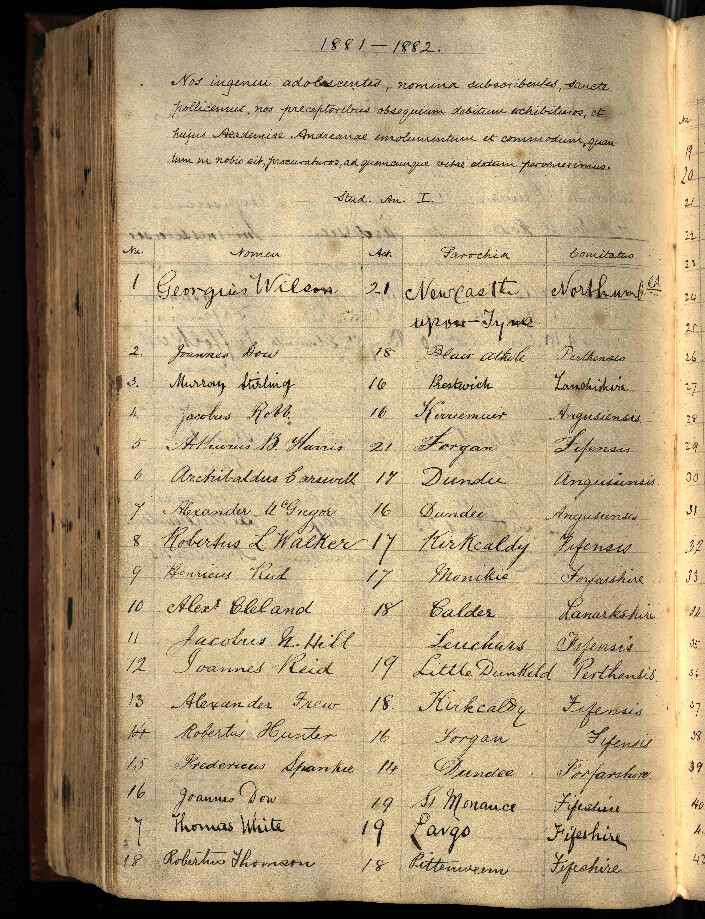 1881 — 1882.
Nos ingenui adolescentes, nomina subscribentes, sancte
pollicemur, nos preceptoribus obsequium debitum exhibituros, et
hujus Academiae Andreanae emolumentum et commodum, quan
tum in nobis sit, procuraturos, ad quemcunque vitae statum pervenerimus.
Stud. An I.
No. Nomen Aet. Parochia Comitatus
1 Georgius Wilson 21 Newcastle Northumbld
upon-Tyne
2. Joannes Dow 18 Blair Athole Perthensis
3. Murray Stirling 16 Prestwich Lancashire
4 Jacobus Robb 16 Kirriemuir Angusiensis
5 Arthurus B. Harris 21 Forgan Fifensis
6 Archibaldus Carswell 17 Dundee Angusiensis
7 Alexander McGregor 16 Dundee Angusiensis
8 Robertus L Walker 17 Kirkcaldy Fifensis
9 Henricus 17 Monikie Forfarshire
10 Alexr Cleland 18 Calder Lanarkshire
11 Jacobus N. Hill Leuchars Fifensis
12 Joannes Reid 19 Little Dunkeld Perthensis
13 Alexander Frew 18. Kirkcaldy Fifensis
14 Robertus Hunter 16 Forgan Fifensis
15 Fredericus Spankie 14 Dundee Forfarshire
16 Joannes Dow 19 St Monance Fifeshire
17 Thomas White 19 Largo Fifeshire
18 Robertus Thomson 18 Pittenweem Fifeshire
No
19
20
21
22
23
24
25
26
27
28
29
30
31
32
33
34
35
36
37
38
39
40
4
42